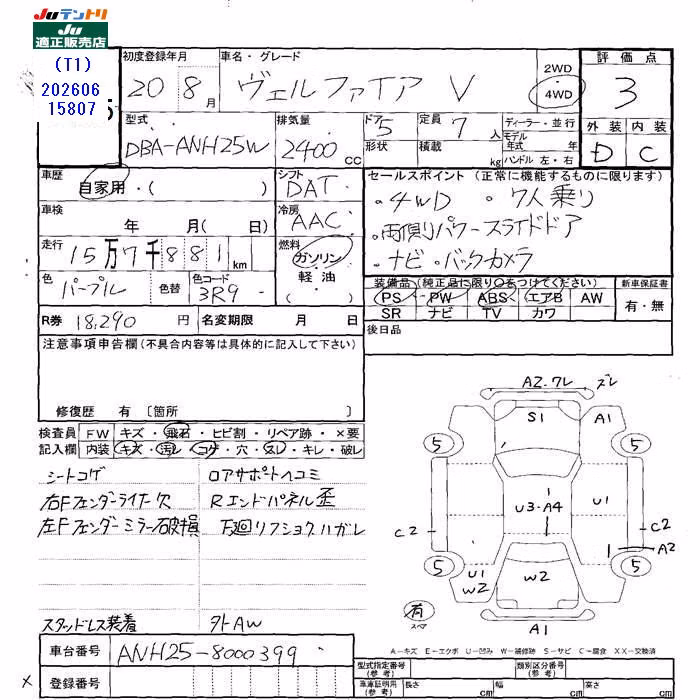 Juテントリ
Ju
適正販売店
(T1)
202606
15807
初度登録年月 20 8月
車名・グレード ヴェルファイア V
2WD
4WD
評価点
3
外装 内装
D C
型式 DBA-ANH25W
排気量 2400cc
ドア 5
形状
定員 7人
積載 kg
ディーラー・並行
モデル年式 年
ハンドル 左・右
車歴 自家用・( )
シフト DAT
セールスポイント (正常に機能するものに限ります)
・4WD ・7人乗り
・両側パワースライドドア
・ナビ ・バックカメラ
車検 年 月( 日)
冷房 AAC
走行 15万7千881km
燃料 ガソリン・軽油・( )
色 パープル
色替
色コード 3R9
装備品(純正品に限り○をつけてください)
新車保証書
PS PW ABS エアB AW
SR ナビ TV カワ
有・無
R券 18,290円
名変期限 月 日
後日品
注意事項申告欄(不具合内容等は具体的に記入して下さい)
修復歴 有 〔箇所 〕
検査員記入欄
FW キズ・飛石・ヒビ割・リペア跡・×要
内装 キズ・汚レ・コゲ・穴・スレ・キレ・破レ
シートコゲ ロアサポートヘコミ
右Fフェンダーライナー欠 Rエンドパネル歪
左Fフェンダーミラー破損 下廻リフショクハガレ
スタッドレス装着 外AW
A2・ワレ ズレ
S1 A1
5 5
U3・A4 U1
C2 C2
A2
5 5
U1
W2 W2
有
スペア
A1
A−キズ E−エクボ U−凹み W−補修跡 S−サビ C−腐食 XX−交換済
車台番号 ANH25-8000399
× 登録番号
型式指定番号(参考)
類別区分番号(参考)
車庫証明用(参考) 長さ cm 幅 cm 高さ cm